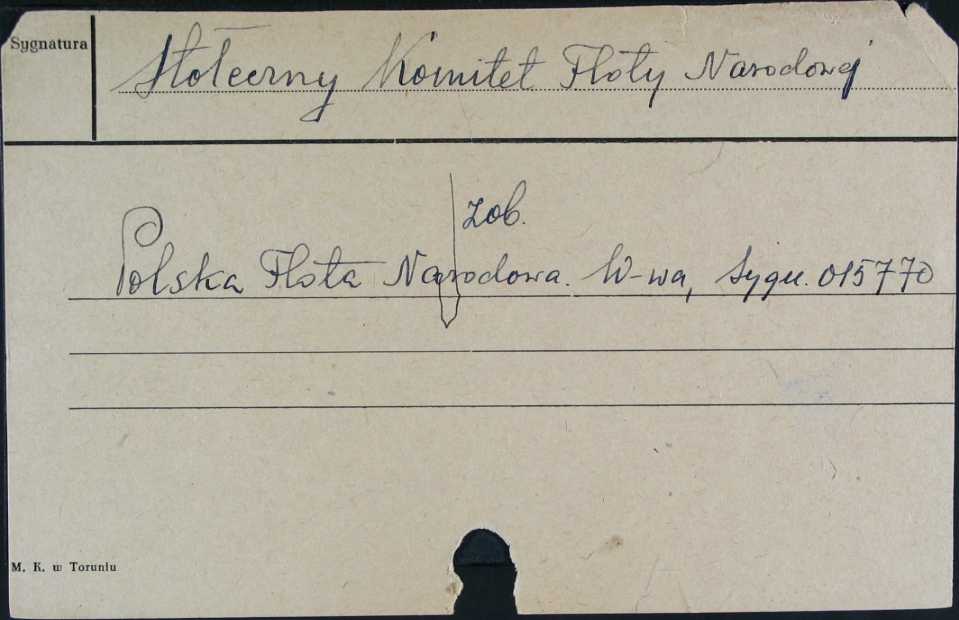 Sygnatura
Stołeczny Komitet Floty Narodowej
zob.
Polska Flota Narodowa. W-wa, Sygn. 015770
M. K. w Toruniu